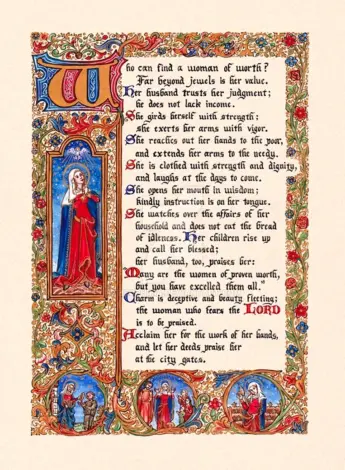 Who can find a woman of worth?
Far beyond jewels is her value.
Her husband trusts her judgment;
he does not lack income.
She girds herself with strength;
she exerts her arms with vigor.
She reaches out her hands to the poor,
and extends her arms to the needy.
She is clothed with strength and dignity,
and laughs at the days to come.
She opens her mouth in wisdom;
kindly instruction is on her tongue.
She watches over the affairs of her
household and does not eat the bread
of idleness. Her children rise up
and call her blessed;
her husband, too, praises her:
Many are the women of proven worth,
but you have excelled them all."
Charm is deceptive and beauty fleeting;
the woman who fears the LORD
is to be praised.
Acclaim her for the work of her hands,
and let her deeds praise her
at the city gates.